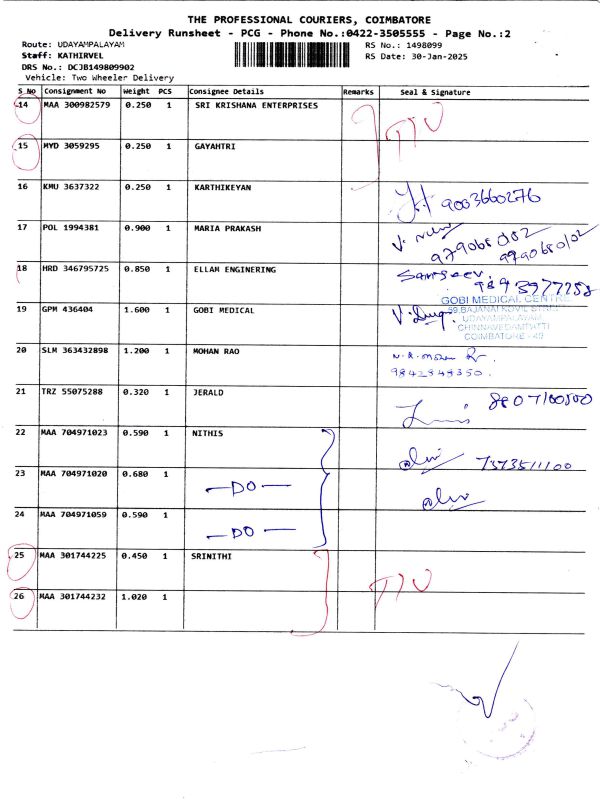 THE PROFESSIONAL COURIERS, COIMBATORE
Delivery Runsheet - PCG - Phone No.:0422-3505555 - Page No.:2
Route: UDAYAMPALAYAM
RS No.: 1498099
Staff: KATHIRVEL
RS Date: 30-Jan-2025
DRS No.: DCJB149809902
Vehicle: Two Wheeler Delivery
S No Consignment No Weight PCS Consignee Details Remarks Seal & Signature
14 MAA 300982579 0.250 1 SRI KRISHANA ENTERPRISES
15 MYD 3059295 0.250 1 GAYAHTRI
16 KMU 3637322 0.250 1 KARTHIKEYAN 9003660276
17 POL 1994381 0.900 1 MARIA PRAKASH
18 HRD 346795725 0.850 1 ELLAM ENGINERING
19 GPM 436404 1.600 1 GOBI MEDICAL
GOBI MEDICAL CENTRE
UDAYAMPALAYAM
CHINNAVEDAMPATTI
COIMBATORE - 49
20 SLM 363432898 1.200 1 MOHAN RAO
9842848350.
21 TRZ 55075288 0.320 1 JERALD
22 MAA 704971023 0.590 1 NITHIS
23 MAA 704971020 0.680 1 —DO—
24 MAA 704971059 0.590 1 —DO—
25 MAA 301744225 0.450 1 SRINITHI
26 MAA 301744232 1.020 1